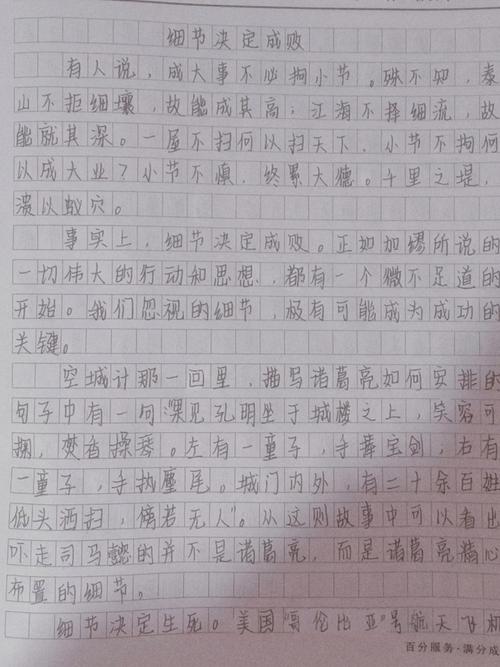 细节决定成败
有人说，成大事不必拘小节。殊不知，泰
山不拒细壤，故能成其高；江海不择细流，故
能就其深。一屋不扫何以扫天下，小节不拘何
以成大业？小节不慎，终累大德。千里之堤，
溃以蚁穴。
事实上，细节决定成败。正如加缪所说的
一切伟大的行动和思想，都有一个微不足道的
开始。我们忽视的细节，极有可能成为成功的
关键。
空城计那一回里，描写诸葛亮如何安排的
句子中有一句"果见孔明坐于城楼之上，笑容可
掬，焚香操琴。左有一童子，手捧宝剑，右有
一童子，手执麈尾。城门内外，有二十余百姓
低头洒扫，傍若无人"。从这则故事中可以看出
吓走司马懿的并不是诸葛亮，而是诸葛亮精心
布置的细节。
细节决定生死。美国"哥伦比亚"号航天飞机
百分服务·满分成